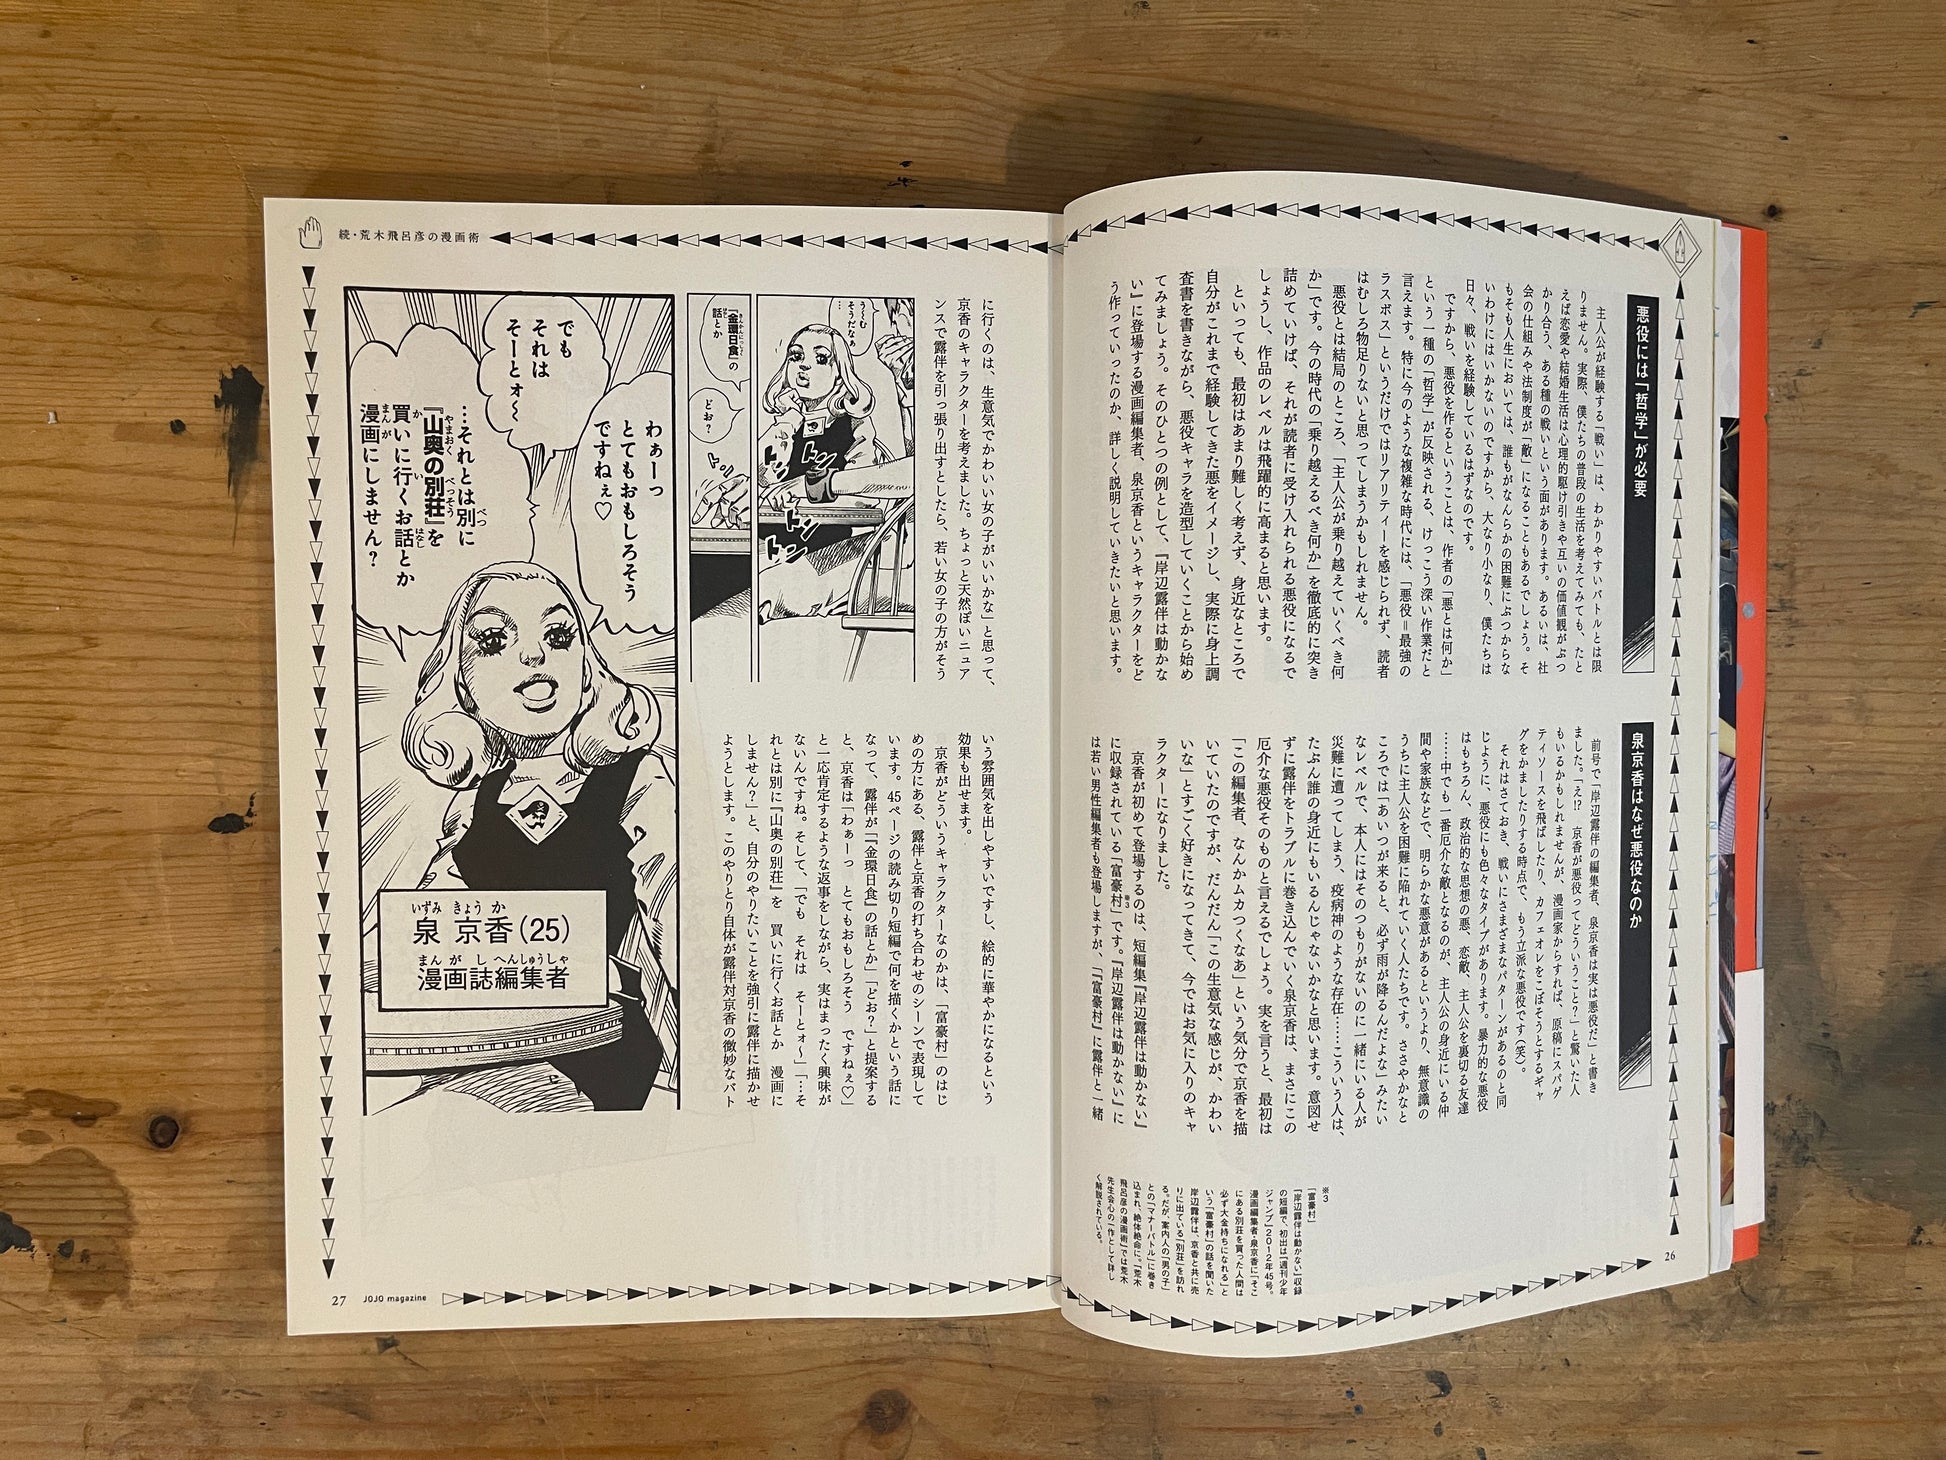 悪役には「哲学」が必要
主人公が経験する「戦い」は、わかりやすいバトルとは限
りません。実際、僕たちの普段の生活を考えてみても、たと
えば恋愛や結婚生活は心理的駆け引きや互いの価値観がぶつ
かり合う、ある種の戦いという面があります。あるいは、社
会の仕組みや法制度が「敵」になることもあるでしょう。そ
もそも人生においては、誰もがなんらかの困難にぶつからな
いわけにはいかないのですから、大なり小なり、僕たちは
日々、戦いを経験しているはずなのです。
ですから、悪役を作るということは、作者の「悪とは何か」
という一種の「哲学」が反映される、けっこう深い作業だと
言えます。特に今のような複雑な時代には、「悪役＝最強の
ラスボス」というだけではリアリティーを感じられず、読者
はむしろ物足りないと思ってしまうかもしれません。
悪役とは結局のところ、「主人公が乗り越えていくべき何
か」です。今の時代の「乗り越えるべき何か」を徹底的に突き
詰めていけば、それが読者に受け入れられる悪役になるで
しょうし、作品のレベルは飛躍的に高まると思います。
といっても、最初はあまり難しく考えず、身近なところで
自分がこれまで経験してきた悪をイメージし、実際に身上調
査書を書きながら、悪役キャラを造型していくことから始め
てみましょう。そのひとつの例として、『岸辺露伴は動かな
い』に登場する漫画編集者、泉京香というキャラクターをど
う作っていったのか、詳しく説明していきたいと思います。
泉京香はなぜ悪役なのか
前号で「岸辺露伴の編集者、泉京香は実は悪役だ」と書き
ました。「え!? 京香が悪役ってどういうこと?」と驚いた人
もいるかもしれませんが、漫画家からすれば、原稿にスパゲ
ティソースを飛ばしたり、カフェオレをこぼそうとするギャ
グをかましたりする時点で、もう立派な悪役です(笑)。
それはさておき、戦いにさまざまなパターンがあるのと同
じように、悪役にも色々なタイプがあります。暴力的な悪役
はもちろん、政治的な思想の悪、恋敵、主人公を裏切る友達
……中でも一番厄介な敵となるのが、主人公の身近にいる仲
間や家族などで、明らかな悪意があるというより、無意識の
うちに主人公を困難に陥れていく人たちです。ささやかなと
ころでは「あいつが来ると、必ず雨が降るんだよな」みたい
なレベルで、本人にはそのつもりがないのに一緒にいる人が
災難に遭ってしまう、疫病神のような存在……こういう人は、
たぶん誰の身近にもいるんじゃないかなと思います。意図せ
ずに露伴をトラブルに巻き込んでいく泉京香は、まさにこの
厄介な悪役そのものと言えるでしょう。実を言うと、最初は
「この編集者、なんかムカつくなあ」という気分で京香を描
いていたのですが、だんだん「この生意気な感じが、かわい
いな」とすごく好きになってきて、今ではお気に入りのキャ
ラクターになりました。
京香が初めて登場するのは、短編集『岸辺露伴は動かない』
に収録されている「富豪村」※3です。『岸辺露伴は動かない』に
は若い男性編集者も登場しますが、「『富豪村』に露伴と一緒
※3
「富豪村」
『岸辺露伴は動かない』収録
の短編で、初出は「週刊少年
ジャンプ」2012年45号。
漫画編集者・泉京香に「そこ
にある別荘を買った人間は
必ず大金持ちになれる」と
いう「富豪村」の話を聞いた
岸辺露伴は、京香と共に売
りに出ている「別荘」を訪れ
る。だが、案内人の「男の子」
との「マナーバトル」に巻き
込まれ、絶体絶命に。『荒木
飛呂彦の漫画術』では荒木
先生会心の一作として詳し
く解説されている。
26
続・荒木飛呂彦の漫画術
に行くのは、生意気でかわいい女の子がいいかな」と思って、
京香のキャラクターを考えました。ちょっと天然ぽいニュア
ンスで露伴を引っ張り出すとしたら、若い女の子の方がそう
いう雰囲気を出しやすいですし、絵的に華やかになるという
効果も出せます。
京香がどういうキャラクターなのかは、「富豪村」のはじ
めの方にある、露伴と京香の打ち合わせのシーンで表現して
います。45ページの読み切り短編で何を描くかという話に
なって、露伴が「『金環日食』の話とか」「どお?」と提案する
と、京香は「わぁーっ とてもおもしろそう ですねぇ♡」
と一応肯定するような返事をしながら、実はまったく興味が
ないんですね。そして、「でも それは そーとォ〜」「…そ
れとは別に『山奥の別荘』を 買いに行くお話とか 漫画に
しません?」と、自分のやりたいことを強引に露伴に描かせ
ようとします。このやりとり自体が露伴対京香の微妙なバト
う〜む
そうだなぁ
…
『金環日食』の
きんかんにっしょく
話とか
はなし
どお?
トントン
トントン
トン
わぁーっ
とてもおもしろそう
ですねぇ♡
でも
それは
そーとォ〜
…それとは別に
べつ
『山奥の別荘』を
やまおく べっそう
買いに行くお話とか
か い はなし
漫画にしません?
まんが
いずみ きょう か
泉 京香(25)
まん が し へんしゅうしゃ
漫画誌編集者
27 JOJO magazine